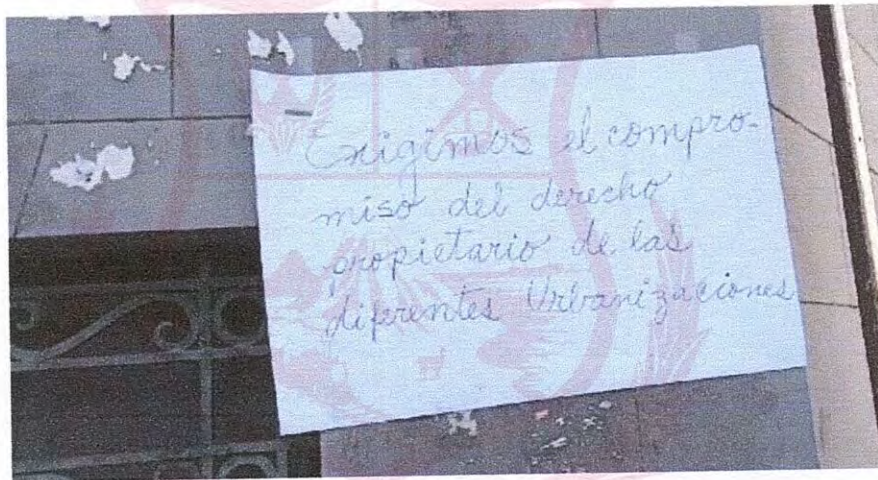 Exigimos el compro-
miso del derecho
propietario de las
diferentes Urbanizaciones